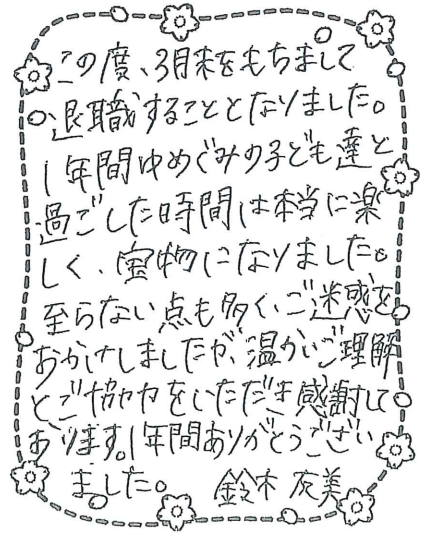 この度、3月末をもちまして
退職することとなりました。
1年間ゆめぐみの子ども達と
過ごした時間は本当に楽
しく、宝物になりました。
至らない点も多く、ご迷惑を
おかけしましたが、温かいご理解
とご協力をいただき感謝して
おります。1年間ありがとうござい
ました。 鈴木 友美